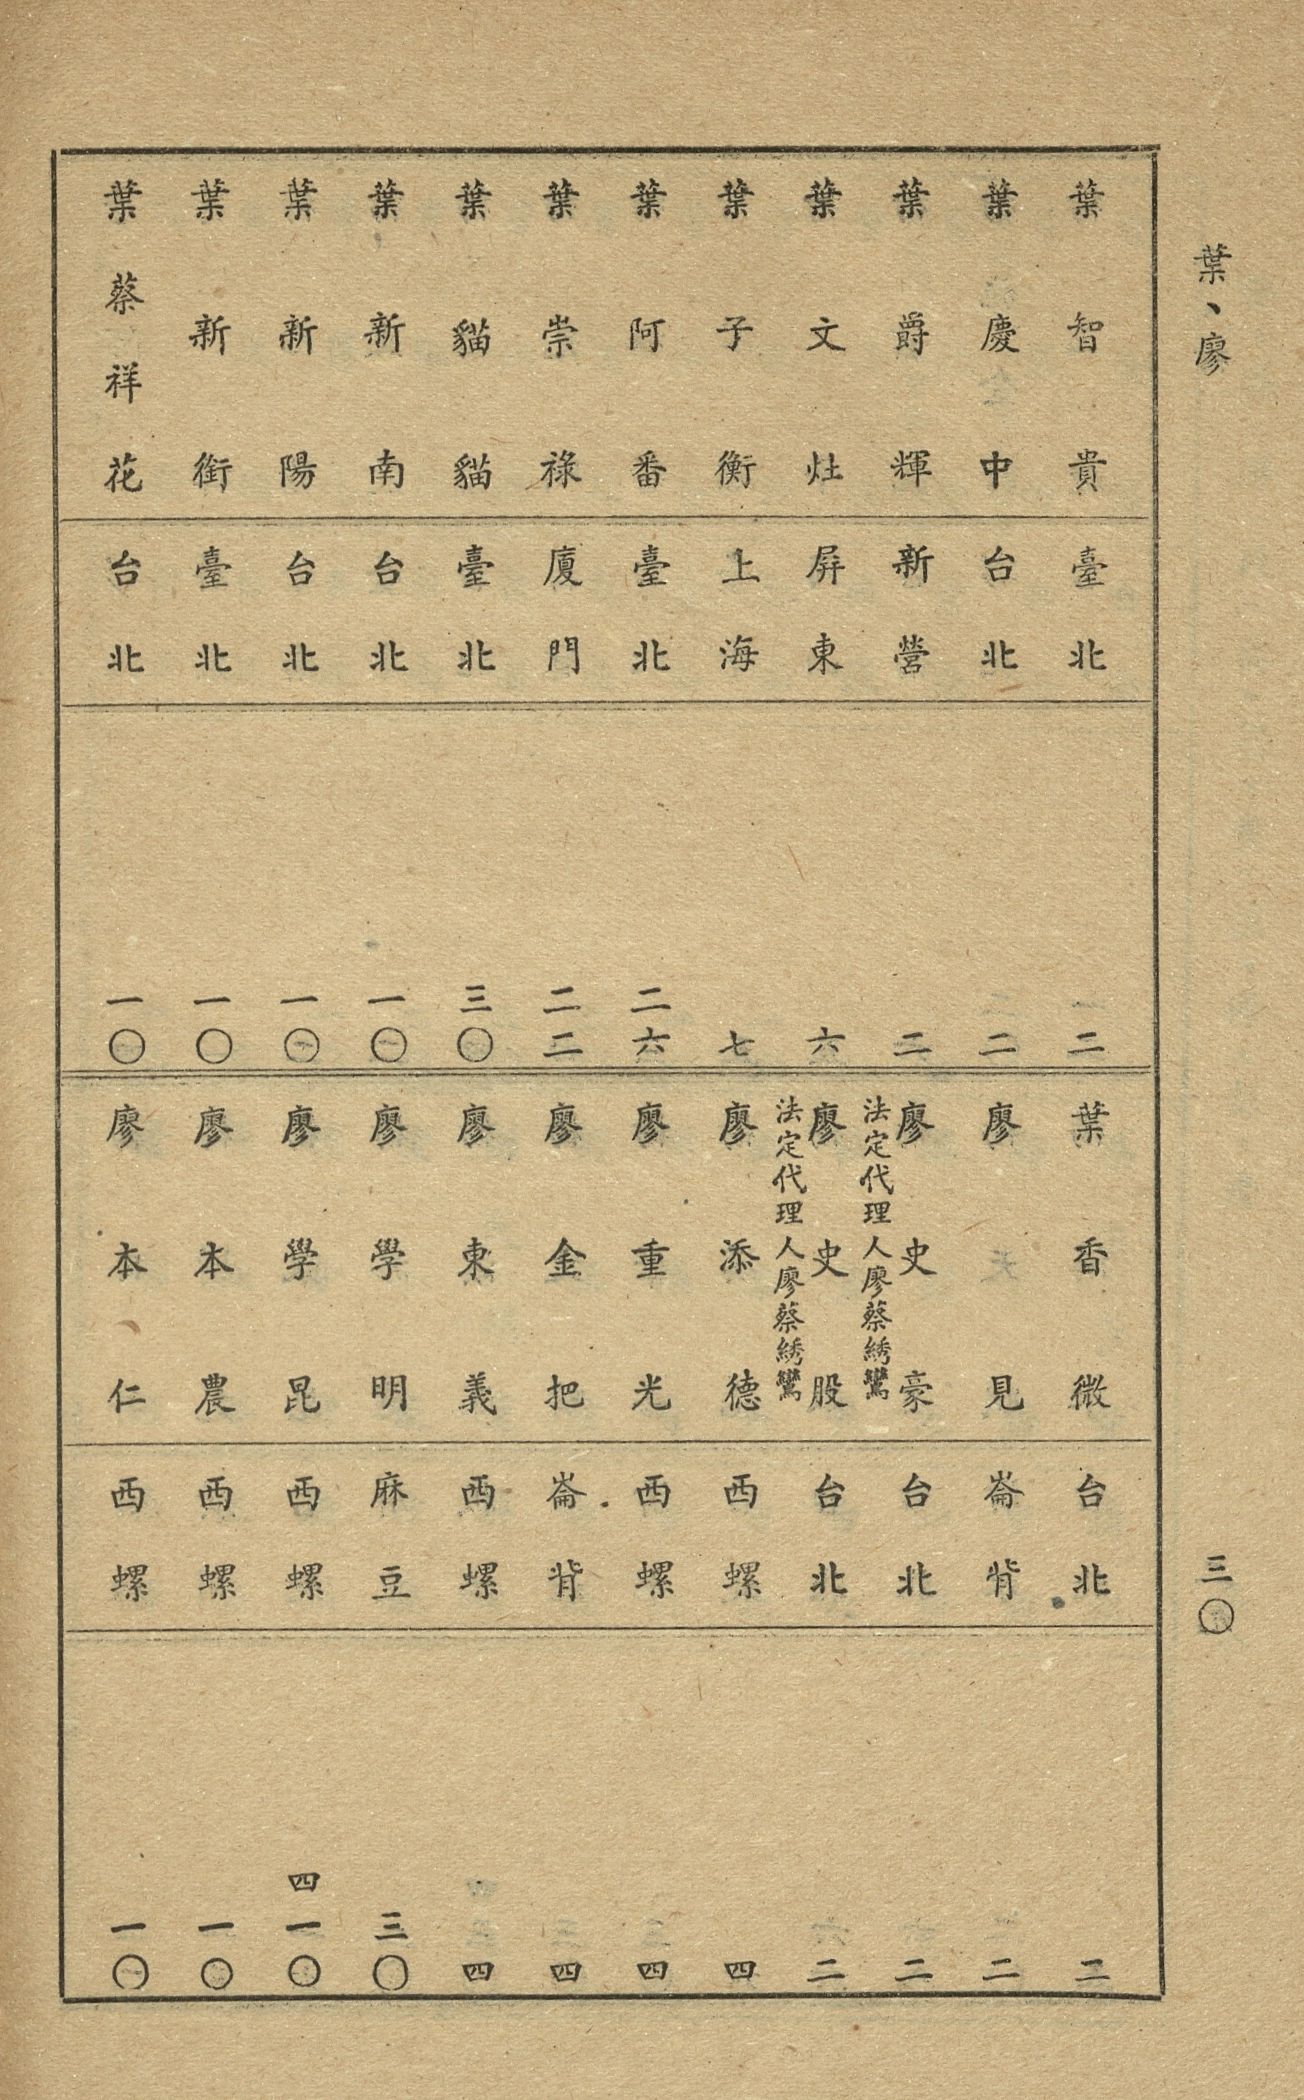 葉、廖
三〇
葉智貴 臺北 一二
葉慶中 台北 二
葉爵輝 新營 二
葉文灶 屏東 六
葉子衡 上海 七
葉阿番 臺北 二六
葉崇祿 廈門 二二
葉貓貓 臺北 三〇
葉新南 台北 一〇
葉新陽 台北 一〇
葉新銜 臺北 一〇
葉蔡祥花 台北 一〇
葉香微 台北 二
廖見 崙背 二
廖史豪 台北 二
法定代理人廖蔡綉鸞
廖史股 台北 二
法定代理人廖蔡綉鸞
廖添德 西螺 四
廖重光 西螺 四
廖金把 崙背 四
廖東義 西螺 四
廖學明 麻豆 三〇
廖學昆 西螺 四一〇
廖本農 西螺 一〇
廖本仁 西螺 一〇